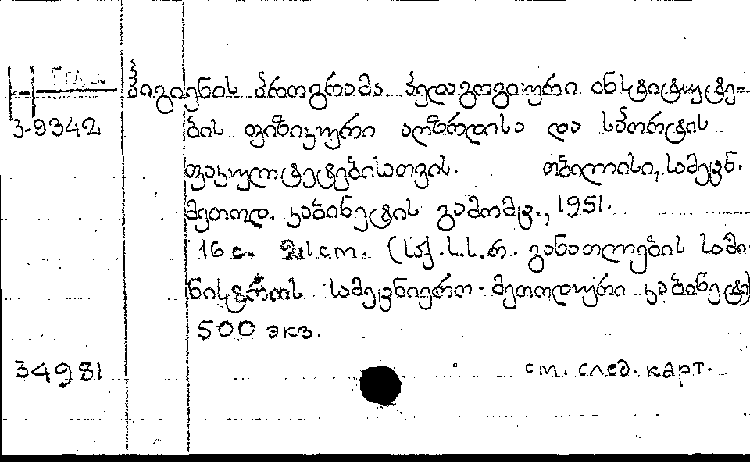 ჰიგიენის პროგრამა პედაგოგიური ინსტიტუტე-
3-9342
ბის ფიზიკური აღზრდისა და სპორტის
ფაკულტეტებისათვის. თბილისი, სამეცნ.
მეთოდ. კაბინეტის გამომც., 1951.
16 с. (საქ. ს.ს.რ. განათლების სამი-
ნისტროს სამეცნიერო-მეთოდური კაბინეტი)
500 экз.
34981
см. след. карт.